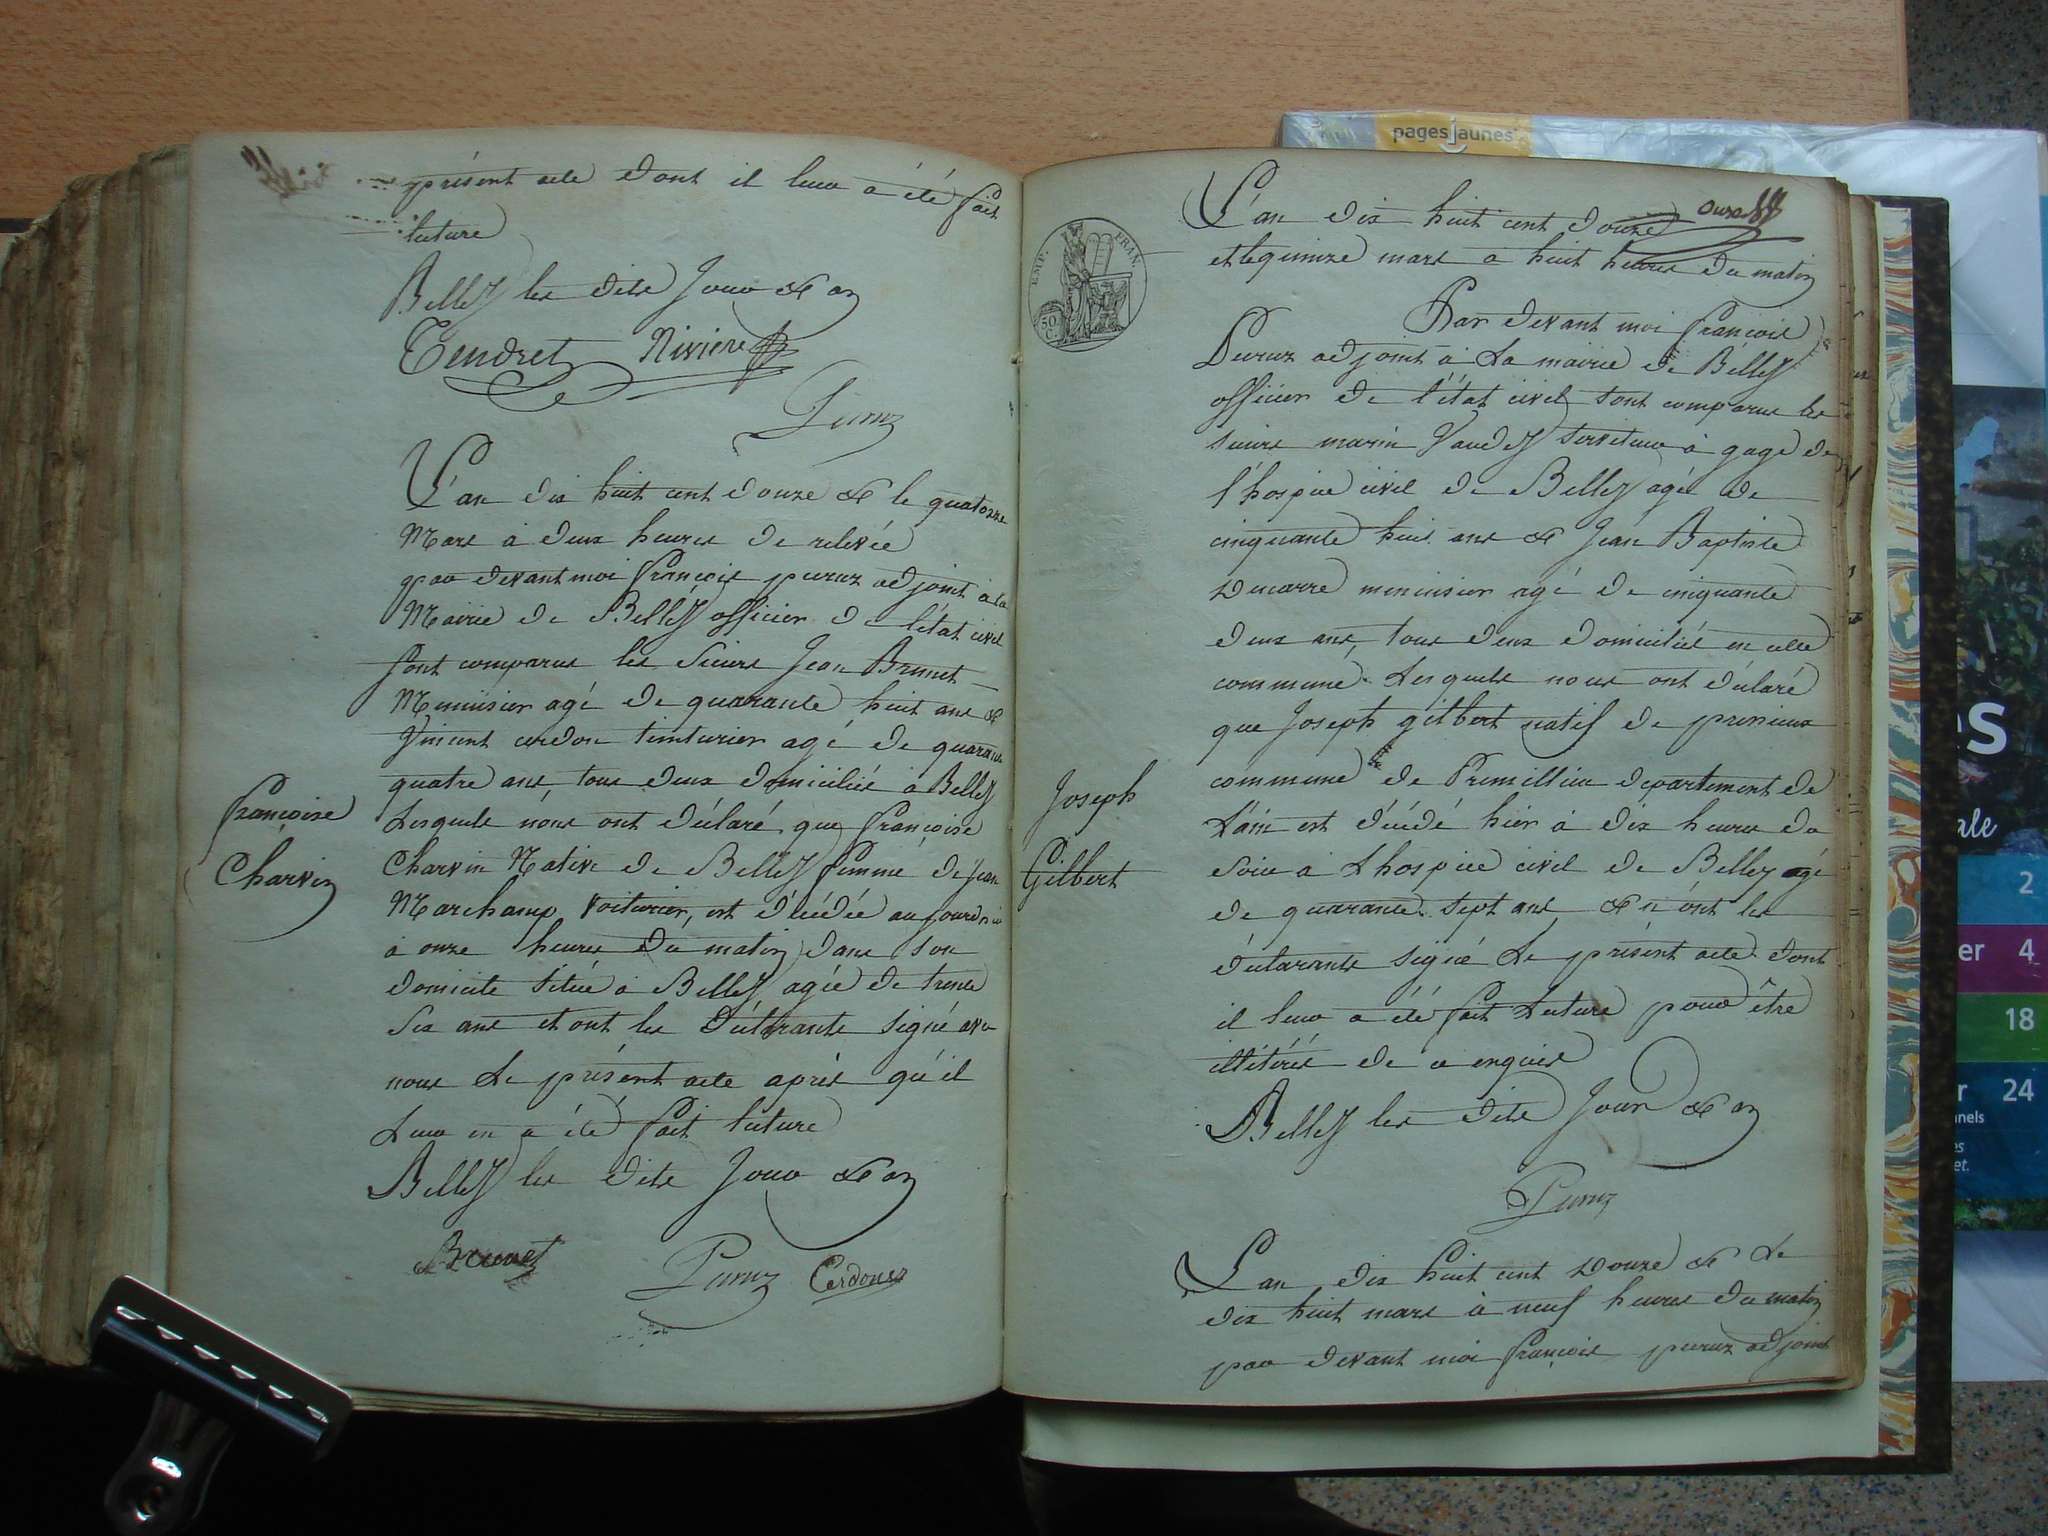 présent acte dont il leur a été fait
lecture
Belley les dits Jour & an
Tendret Rivière
Peruz
L'an dix huit cent douze & le quatorze
Mars à deux heures de relevée
par devant moi françois peruz adjoint à la
Mairie de Belley officier de l'état civil
sont comparus les sieurs Jean Brunet
Menuisier agé de quarante huit ans &
Vincent cerdon teinturier agé de quarante
quatre ans, tous deux domiciliés à Belley
Lesquels nous ont déclaré que françoise
Charvin Native de Belley femme de jean
Marchamp voiturier, est décédée aujourd'hui
à onze heures du matin dans son
domicile située à Belley agée de trente
six ans et ont les Déclarants signé avec
nous Le présent acte après qu'il
Leur en a été fait lecture
Belley les dits Jour & an
Brunet Peruz Cerdon
françoise
Charvin
pagesjaunes
EMP. FRAN.
50
C.
L'an dix huit cent douze
et le quinze mars à huit heures du matin
Par devant moi françois
Peruz adjoint à La mairie de Belley
officier de l'état civil sont comparus les
sieurs marin Vaudey serviteur à gage de
l'hospice civil de Belley agée de
cinquante huit ans & Jean Baptiste
Ducarre menuisier agé de cinquante
deux ans, tous deux domiciliés en cette
commune. Lesquels nous ont déclaré
que Joseph gilbert natif de
commune de Premillieu département de
L'ain est décédé hier à dix heures du
soir à L'hospice civil de Belley agé
de quarante sept ans, & n'ont les
déclarants signé Le présent acte dont
il leur a été fait Lecture pour être
illétérés de ce enquis
Belley les dits Jour & an
Peruz
Joseph
Gilbert
L'an dix huit cent Douze & Le
dix huit mars à neuf heures du matin
par devant moi françois peruz adjoint
ale
2
er 4
18
r 24
nnels
es
et.